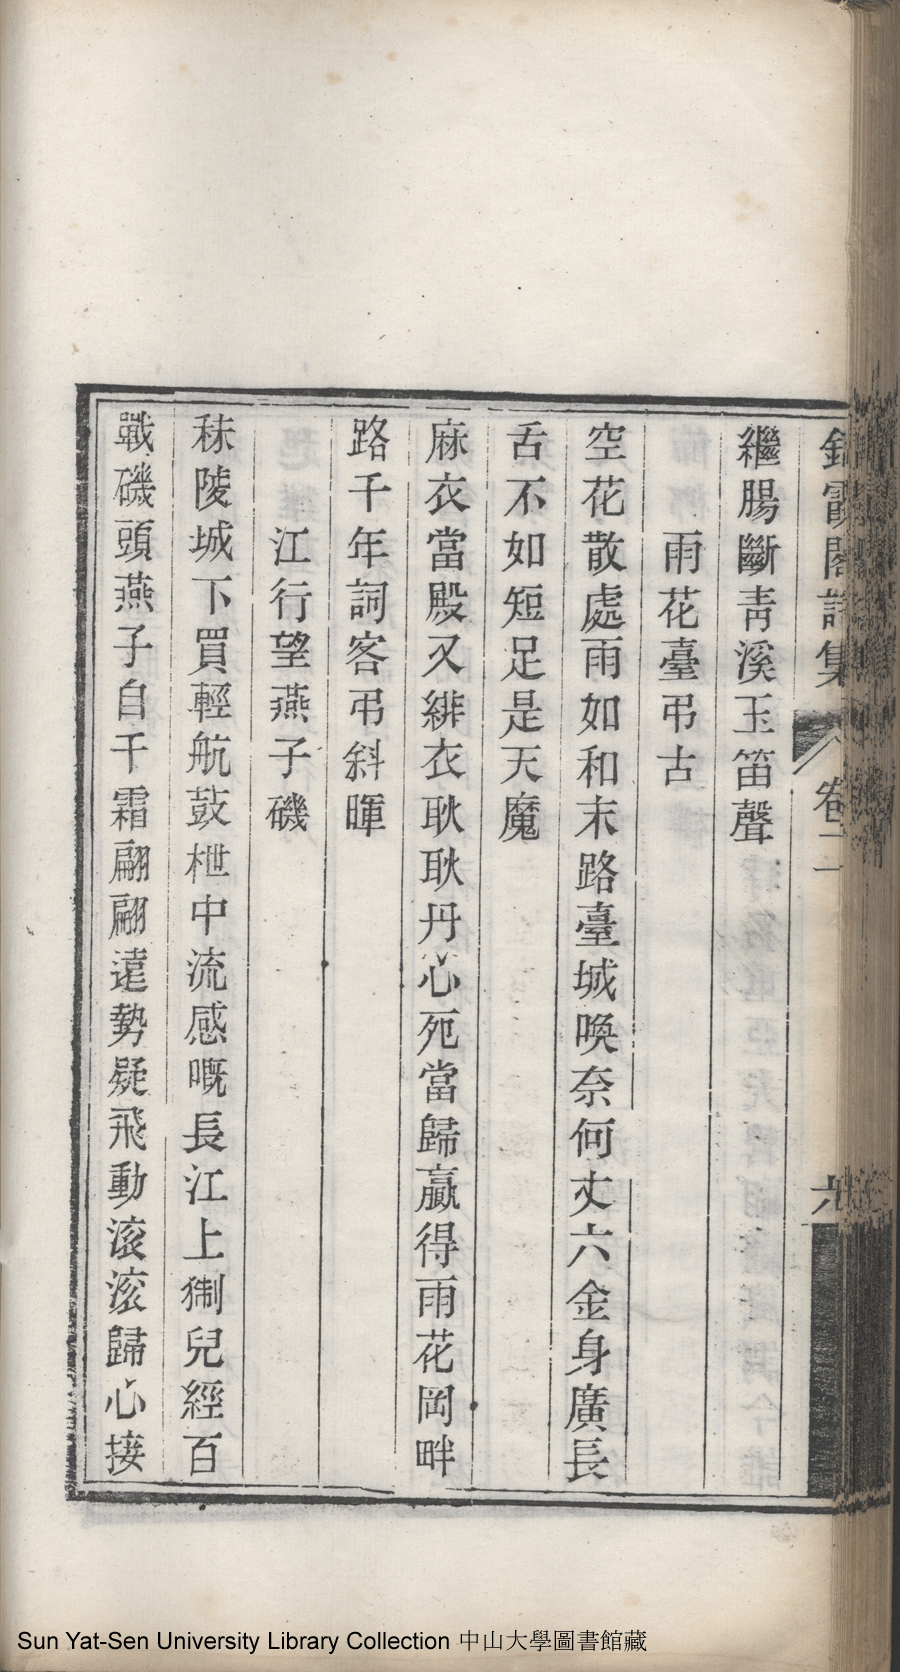 繼腸斷靑溪玉笛聲
雨花臺弔古
空花散處雨如和末路臺城喚奈何丈六金身廣長
舌不如短足是天魔
麻衣當殿又緋衣耿耿丹心死當歸贏得雨花岡畔
路千年詞客弔斜暉
江行望燕子磯
秣陵城下買輕航鼓枻中流感嘅長江上猘兒經百
戰磯頭燕子自千霜翩翩遠勢疑飛動滚滚歸心接
霞閣詩集
卷二
Sun Yat-Sen University Library Collection 中山大學圖書館藏